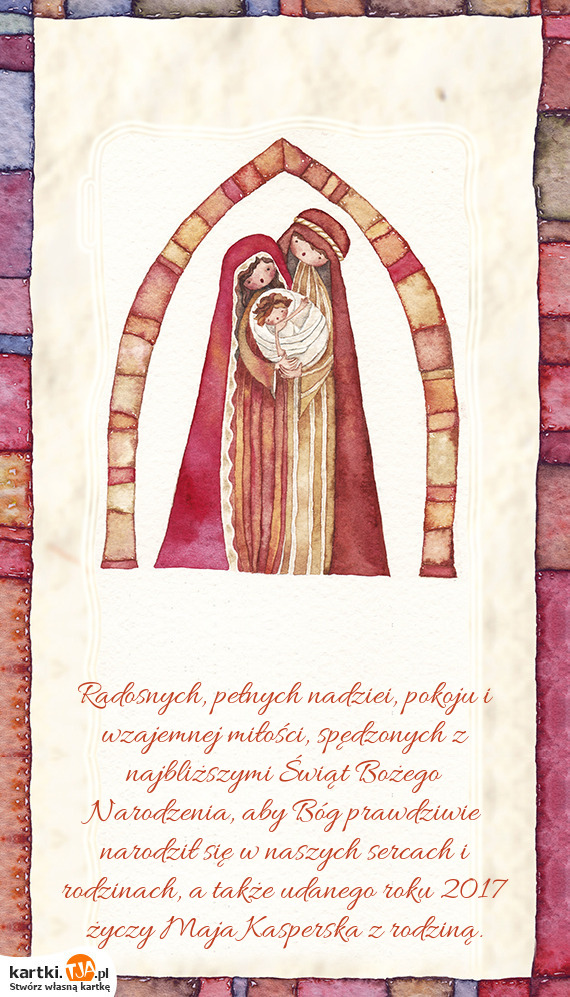 Radosnych, pełnych nadziei, pokoju i
wzajemnej miłości, spędzonych z
najbliższymi Świąt Bożego
Narodzenia, aby Bóg prawdziwie
narodził się w naszych sercach i
rodzinach, a także udanego roku 2017
życzy Maja Kasperska z rodziną.
kartki.TJA.pl
Stwórz własną kartkę